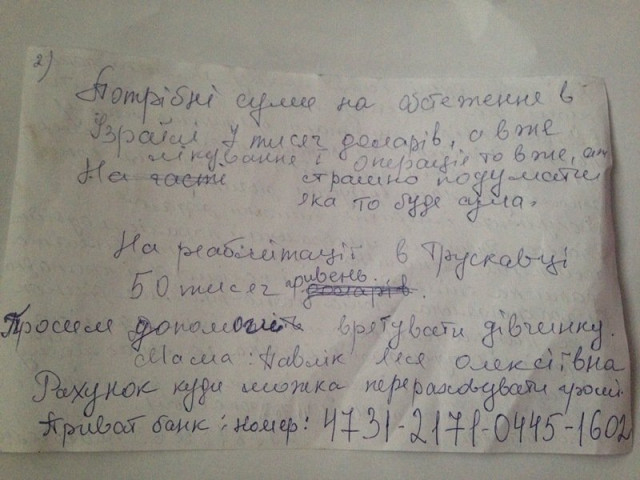 2)
Потрібні суми на обстеження в
Ізраїлі 7 тисяч доларів, а вже
лікування і операції то вже, аж
На части страшно подумати
яка то буде сума.
На реабілітації в Трускавці
50 тисяч гривень.
доларів.
Просим допомогить врятувати дівчинку.
Мама: Павлік Леся Олексіївна
Рахунок куди можна перераховувати гроші.
Приват банк: номер: 4731-2171-0445-1602